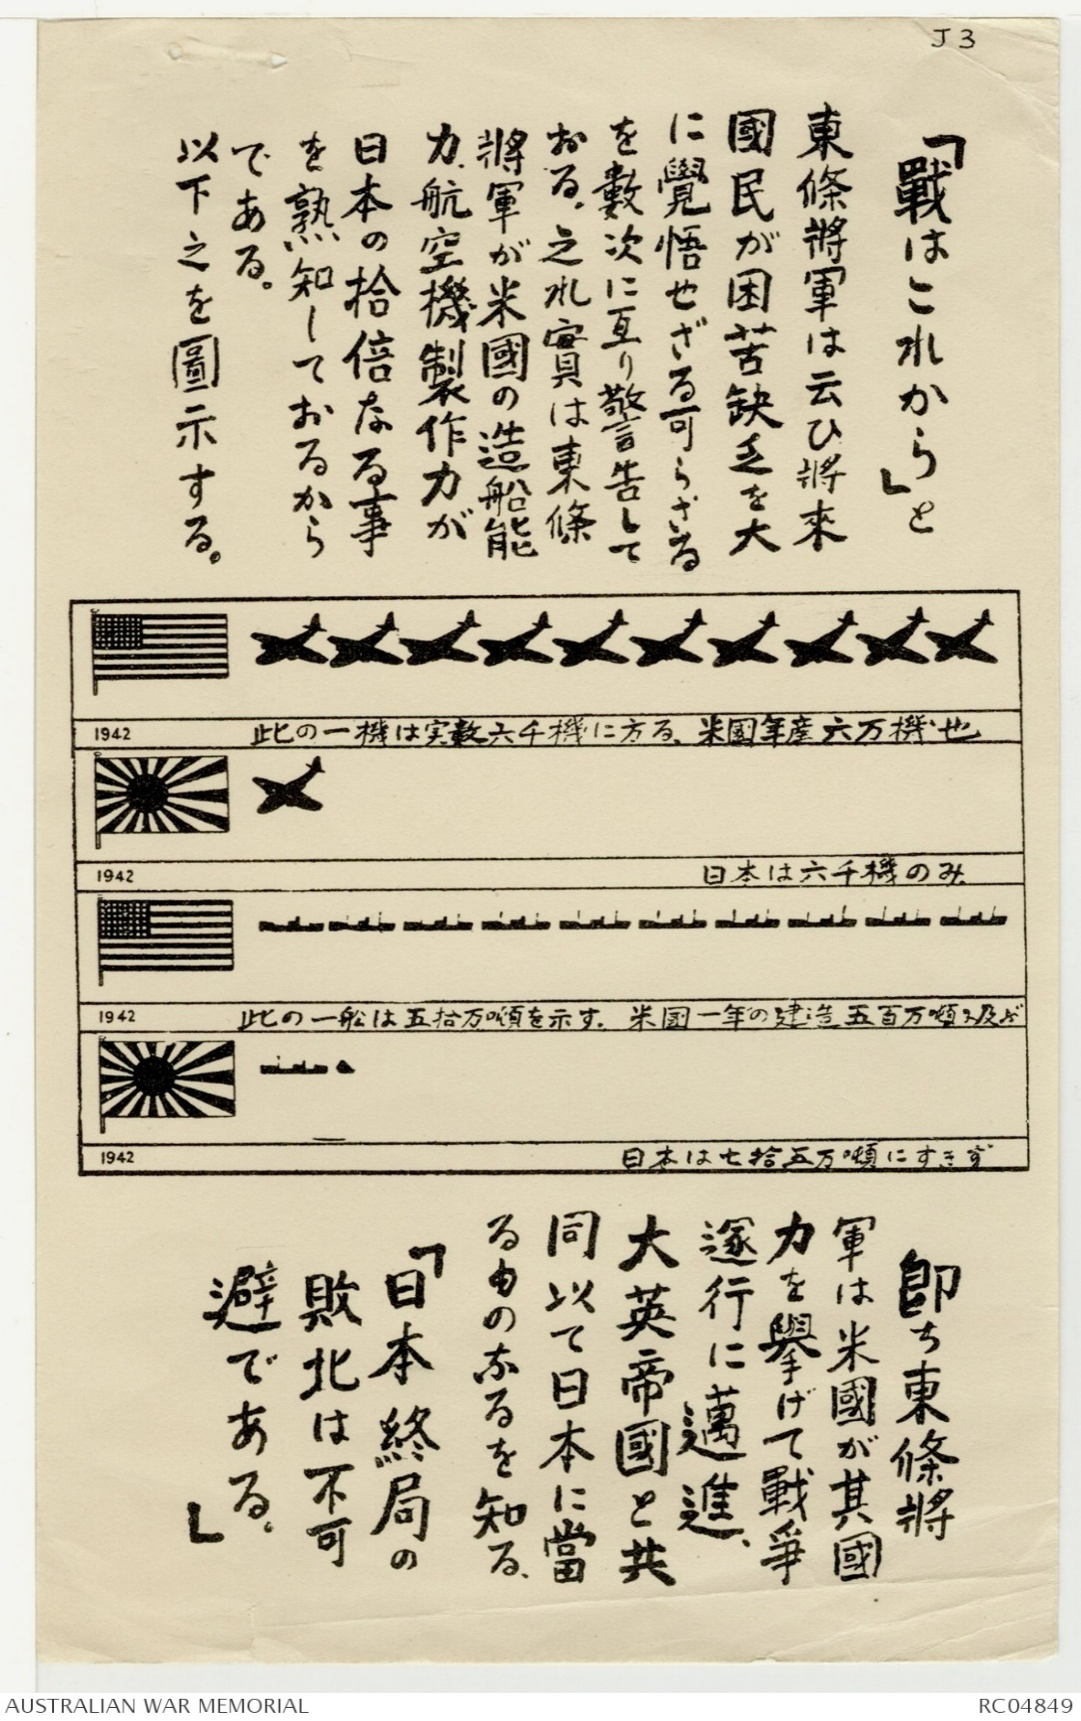 J3
「戰はこれから」と
東條將軍は云ひ將來
國民が困苦缺乏を大
に覺悟せざる可らざる
を數次に亙り警告して
おる、之れ實は東條
將軍が米國の造船能
力、航空機製作力が
日本の拾倍なる事
を熟知しておるから
である。
以下之を圖示する。
1942 此の一機は実數六千機に方る、米国年産六万機也
1942 日本は六千機のみ
1942 此の一船は五拾万噸を示す。米國一年の建造五百万噸に及ぶ
1942 日本は七拾五万噸にすぎず
卽ち東條將
軍は米國が其國
力を擧げて戰爭
遂行に邁進、
大英帝國と共
同以て日本に當
るものなるを知る、
「日本終局の
敗北は不可
避である。」
AUSTRALIAN WAR MEMORIAL
RC04849